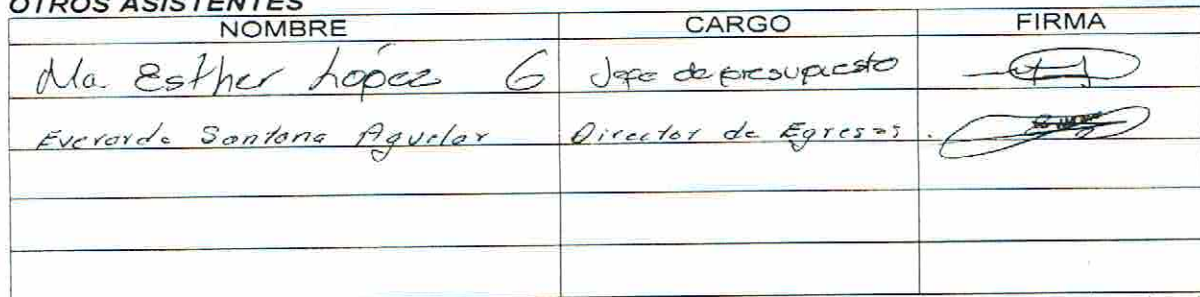 OTROS ASISTENTES
NOMBRE CARGO FIRMA
Ma. Esther López G Jefe de presupuesto
Everardo Santana Aguilar Director de Egresos.